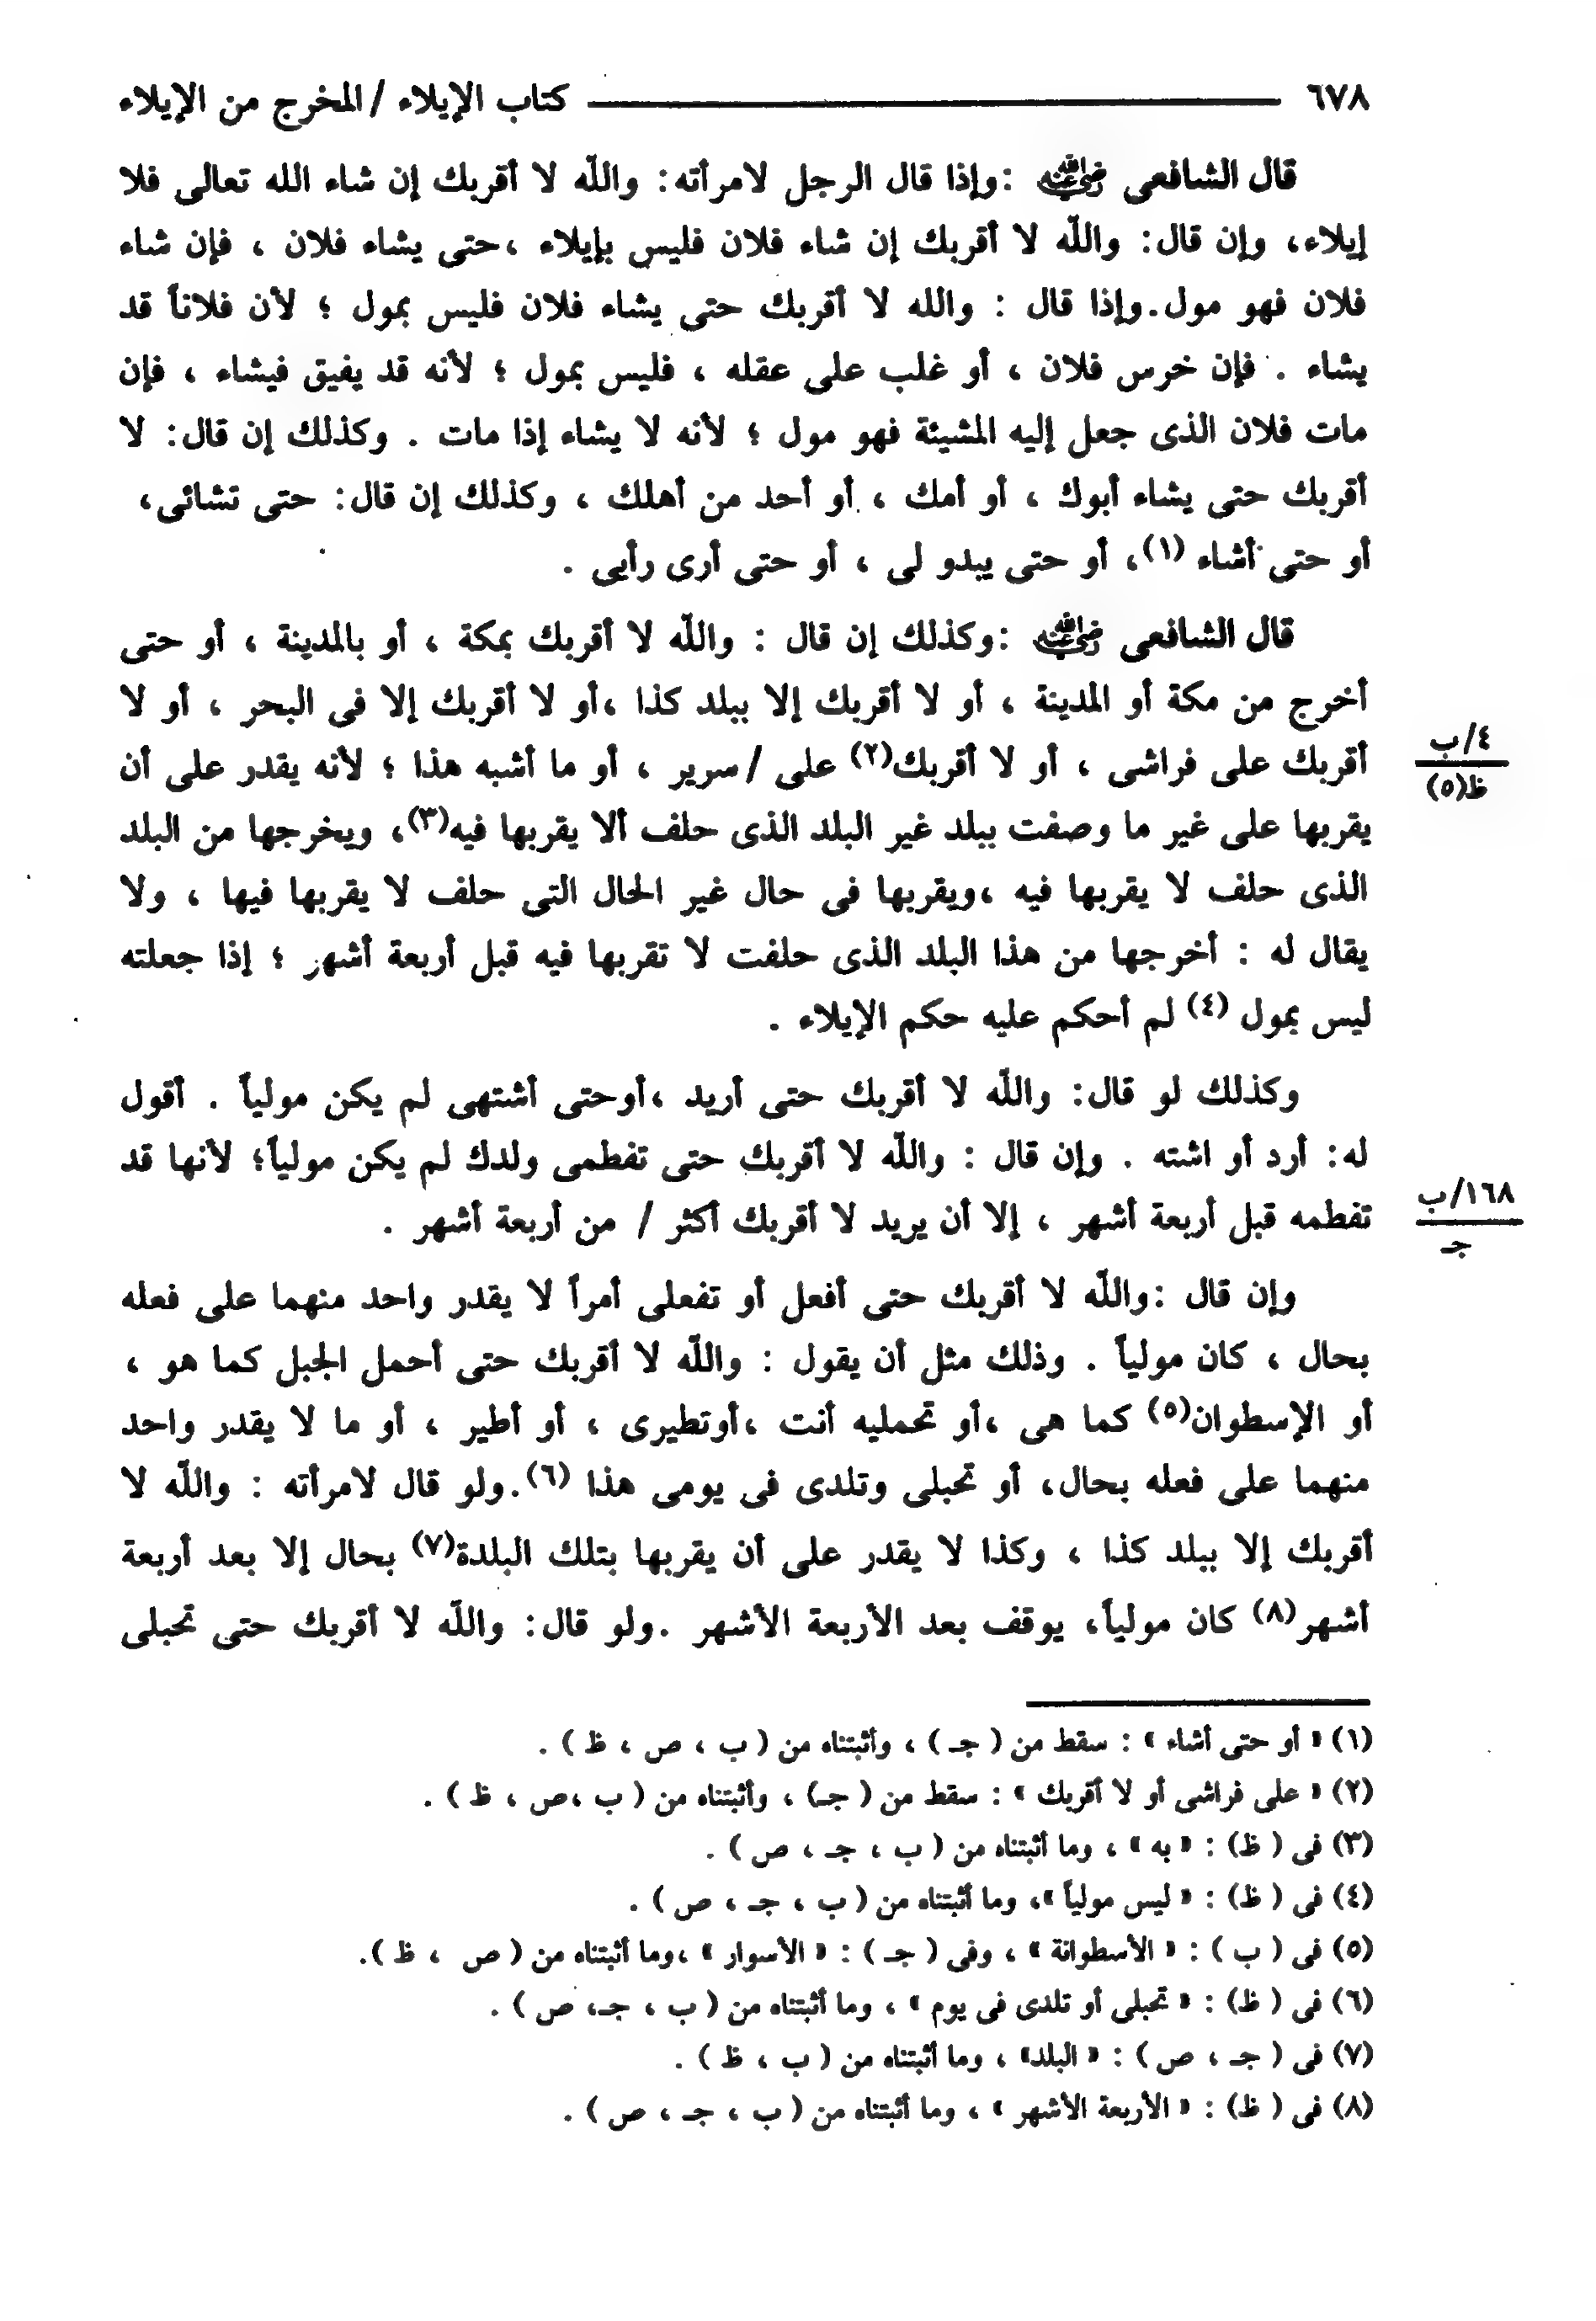 ٦٧٨ كتاب الإيلاء / المخرج من الإيلاء
قال الشافعى رضي الله عنه : وإذا قال الرجل لامرأته: واللّه لا أقربك إن شاء الله تعالى فلا
إيلاء، وإن قال: واللّه لا أقربك إن شاء فلان فليس بإيلاء ،حتى يشاء فلان ، فإن شاء
فلان فهو مول.وإذا قال : والله لا أقربك حتى يشاء فلان فليس بمول ؛ لأن فلاناً قد
يشاء . فإن خرس فلان ، أو غلب على عقله ، فليس بمول ؛ لأنه قد يفيق فيشاء ، فإن
مات فلان الذى جعل إليه المشيئة فهو مول ؛ لأنه لا يشاء إذا مات . وكذلك إن قال: لا
أقربك حتى يشاء أبوك ، أو أمك ، أو أحد من أهلك ، وكذلك إن قال: حتى تشائى،
أو حتى أشاء (١)، أو حتى يبدو لى ، أو حتى أرى رأيى .
قال الشافعى رضي الله عنه :وكذلك إن قال : واللّه لا أقربك بمكة ، أو بالمدينة ، أو حتى
أخرج من مكة أو المدينة ، أو لا أقربك إلا ببلد كذا ،أو لا أقربك إلا فى البحر ، أو لا
أقربك على فراشى ، أو لا أقربك(٢) على /سرير ، أو ما أشبه هذا ؛ لأنه يقدر على أن
٤/ب
ظ(٥)
يقربها على غير ما وصفت ببلد غير البلد الذى حلف ألا يقربها فيه(٣)، ويخرجها من البلد
الذى حلف لا يقربها فيه ،ويقربها فى حال غير الحال التى حلف لا يقربها فيها ، ولا
يقال له : أخرجها من هذا البلد الذى حلفت لا تقربها فيه قبل أربعة أشهر ؛ إذا جعلته
ليس بمول (٤) لم أحكم عليه حكم الإيلاء .
وكذلك لو قال: واللّه لا أقربك حتى أريد ،أوحتى أشتهى لم يكن مولياً . أقول
له: أرد أو اشته . وإن قال : واللّه لا أقربك حتى تفطمى ولدك لم يكن مولياً؛ لأنها قد
تفطمه قبل أربعة أشهر ، إلا أن يريد لا أقربك أكثر / من أربعة أشهر .
١٦٨/ب
جـ
وإن قال :واللّه لا أقربك حتى أفعل أو تفعلى أمراً لا يقدر واحد منهما على فعله
بحال ، كان مولياً . وذلك مثل أن يقول : واللّه لا أقربك حتى أحمل الجبل كما هو ،
أو الإسطوان(٥) كما هى ،أو تحمليه أنت ،أوتطيرى ، أو أطير ، أو ما لا يقدر واحد
منهما على فعله بحال، أو تحبلى وتلدى فى يومى هذا (٦).ولو قال لامرأته : واللّه لا
أقربك إلا ببلد كذا ، وكذا لا يقدر على أن يقربها بتلك البلدة(٧) بحال إلا بعد أربعة
أشهر(٨) كان مولياً، يوقف بعد الأربعة الأشهر .ولو قال: واللّه لا أقربك حتى تحبلى
(١) « أو حتى أشاء » : سقط من ( جـ ) ، وأثبتناه من ( ب ، ص ، ظ ) .
(٢) « على فراشى أو لا أقربك » : سقط من ( جـ) ، وأثبتناه من ( ب ،ص ، ظ ) .
(٣) فى ( ظ) : « به » ، وما أثبتناه من ( ب ، جـ ، ص ) .
(٤) فى ( ظ) : « ليس مولياً »، وما أثبتناه من ( ب ، جـ ، ص ) .
(٥) فى ( ب ) : « الأسطوانة » ، وفى ( جـ ) : « الأسوار » ،وما أثبتناه من ( ص ، ظ ).
(٦) فى ( ظ) : « تحبلى أو تلدى فى يوم » ، وما أثبتناه من ( ب ، جـ، ص ) .
(٧) فى ( جـ ، ص ) : « البلد» ، وما أثبتناه من ( ب ، ظ ) .
(٨) فى ( ظ) : « الأربعة الأشهر » ، وما أثبتناه من ( ب ، جـ ، ص ) .